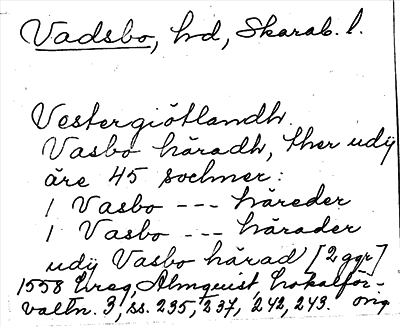 Vadsbo, hd, Skarab. l.
Vestergiötlandh.
Vasbo häradh, ther udij
äre 45 sochner:
1 Vasbo --- häreder
1 Vasbo --- härader
udij Vasbo härad [2 ggr]
1558 Almquist, Lokalför-
valtn. 3, ss. 235, 237, 242, 243. orig